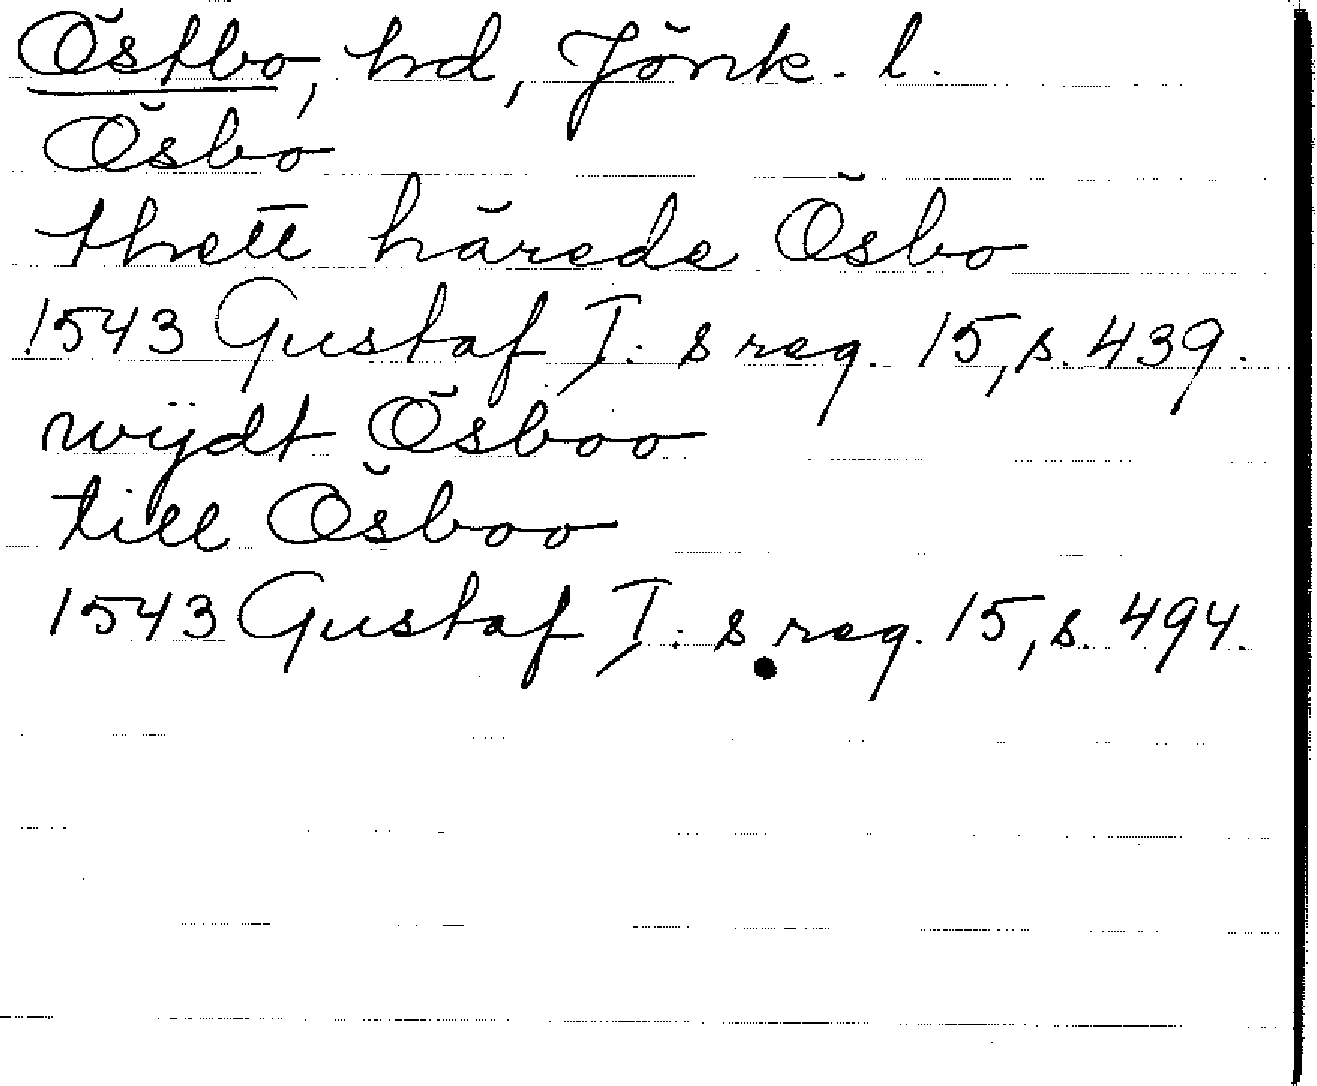 Östbo, hd, Jönk. l.
Ösbo
thett härede Ösbo
1543 Gustaf I: s reg. 15, s. 439.
wÿdt Ösboo
till Ösboo
1543 Gustaf I: s reg. 15, s. 494.